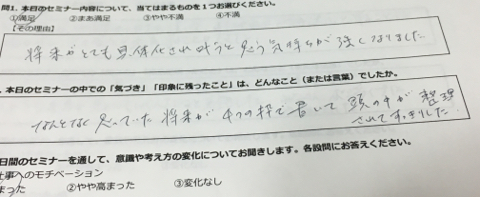 問1. 本日のセミナー内容について、当てはまるものを１つお選びください。
①満足 ②まあ満足 ③やや不満 ④不満
【その理由】
将来がとても具体化され叶うと思う気持ちが強くなりました
. 本日のセミナーの中での「気づき」「印象に残ったこと」は、どんなこと（または言葉）でしたか。
なんとなく思っていた将来が4つの枠で書いて頭の中が整理
されてすっきりした
日間のセミナーを通して、意識や考え方の変化についてお聞きします。各設問にお答えください。
仕事へのモチベーション
まった ②やや高まった ③変化なし